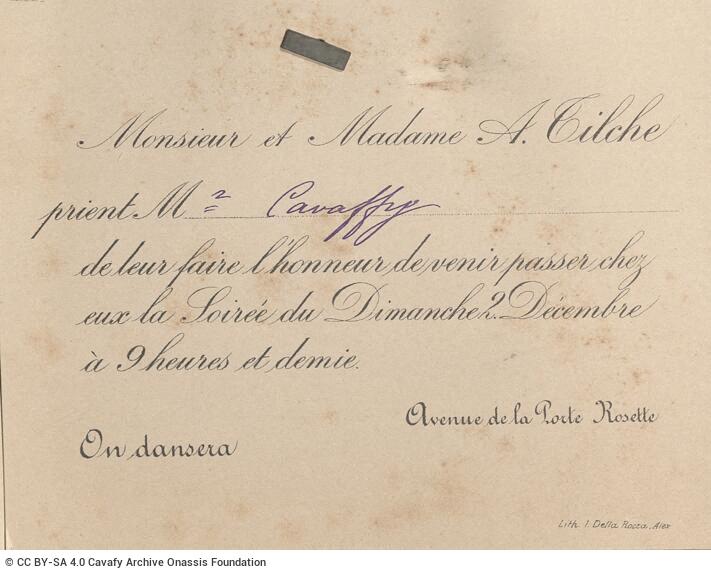 Monsieur et Madame A. Tilche
prient Mr Cavaffy
de leur faire l'honneur de venir passer chez
eux la Soirée du Dimanche 2. Décembre
à 9 heures et demie.
Avenue de la Porte Rosette
On dansera
Lith. I. Della Rocca, Alex
© CC BY-SA 4.0 Cavafy Archive Onassis Foundation